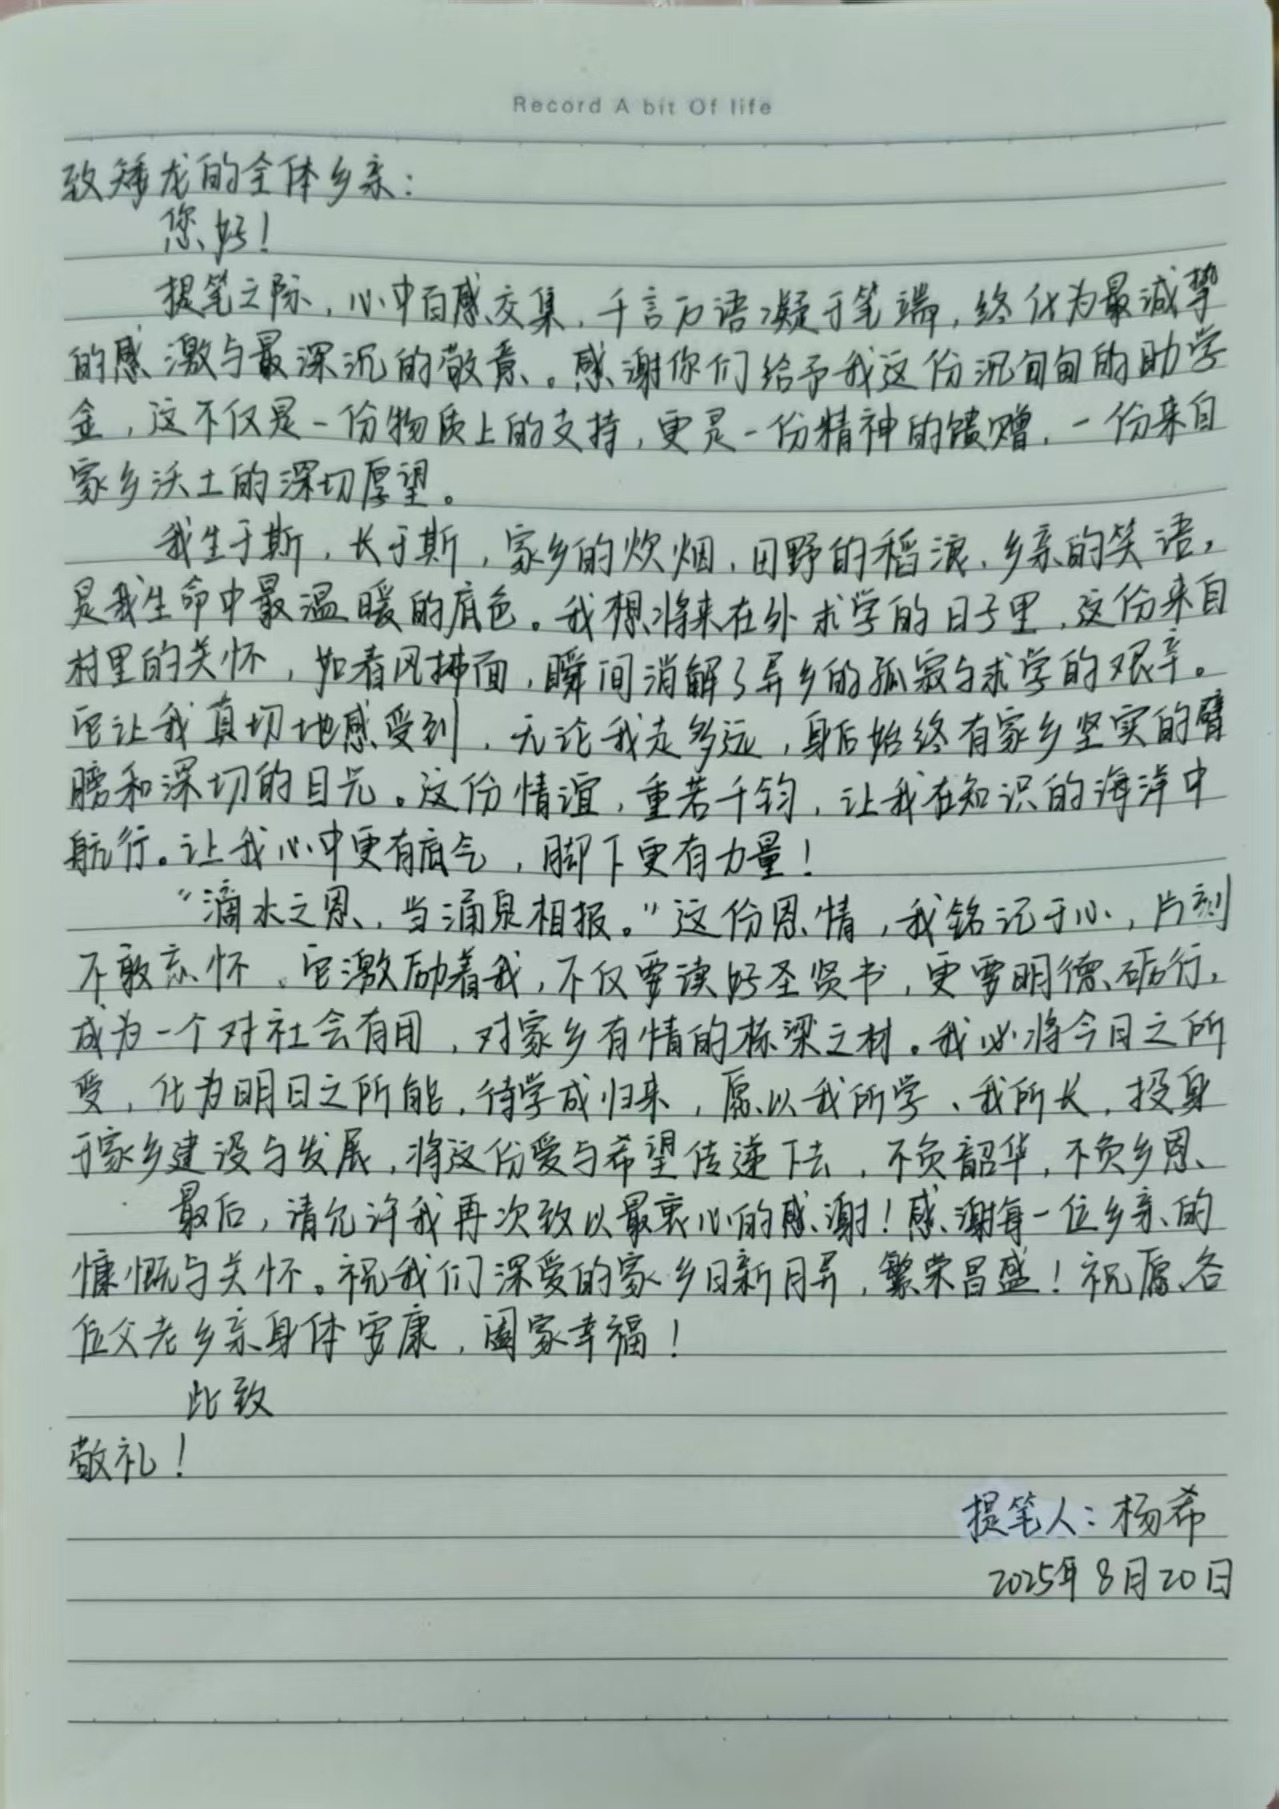 Record A bit Of life
致矮龙的全体乡亲：
您好！
提笔之际，心中百感交集，千言万语凝于笔端，终化为最诚挚
的感激与最深沉的敬意。感谢你们给予我这份沉甸甸的助学
金，这不仅是一份物质上的支持，更是一份精神的馈赠，一份来自
家乡沃土的深切厚望。
我生于斯，长于斯，家乡的炊烟、田野的稻浪、乡亲的笑语，
是我生命中最温暖的底色。我想将来在外求学的日子里，这份来自
村里的关怀，如春风拂面，瞬间消解了异乡的孤寂与求学的艰辛。
它让我真切地感受到，无论我走多远，身后始终有家乡坚实的臂
膀和深切的目光。这份情谊，重若千钧，让我在知识的海洋中
航行。让我心中更有底气，脚下更有力量！
“滴水之恩，当涌泉相报。”这份恩情，我铭记于心，片刻
不敢忘怀。它激励着我，不仅要读好圣贤书，更要明德砺行，
成为一个对社会有用，对家乡有情的栋梁之材。我必将今日之所
受，化为明日之所能，待学成归来，愿以我所学、我所长，投身
于家乡建设与发展，将这份爱与希望传递下去，不负韶华，不负乡恩、
最后，请允许我再次致以最衷心的感谢！感谢每一位乡亲的
慷慨与关怀。祝我们深爱的家乡日新月异，繁荣昌盛！祝愿各
位父老乡亲身体安康，阖家幸福！
此致
敬礼！
提笔人：杨希
2025年8月20日